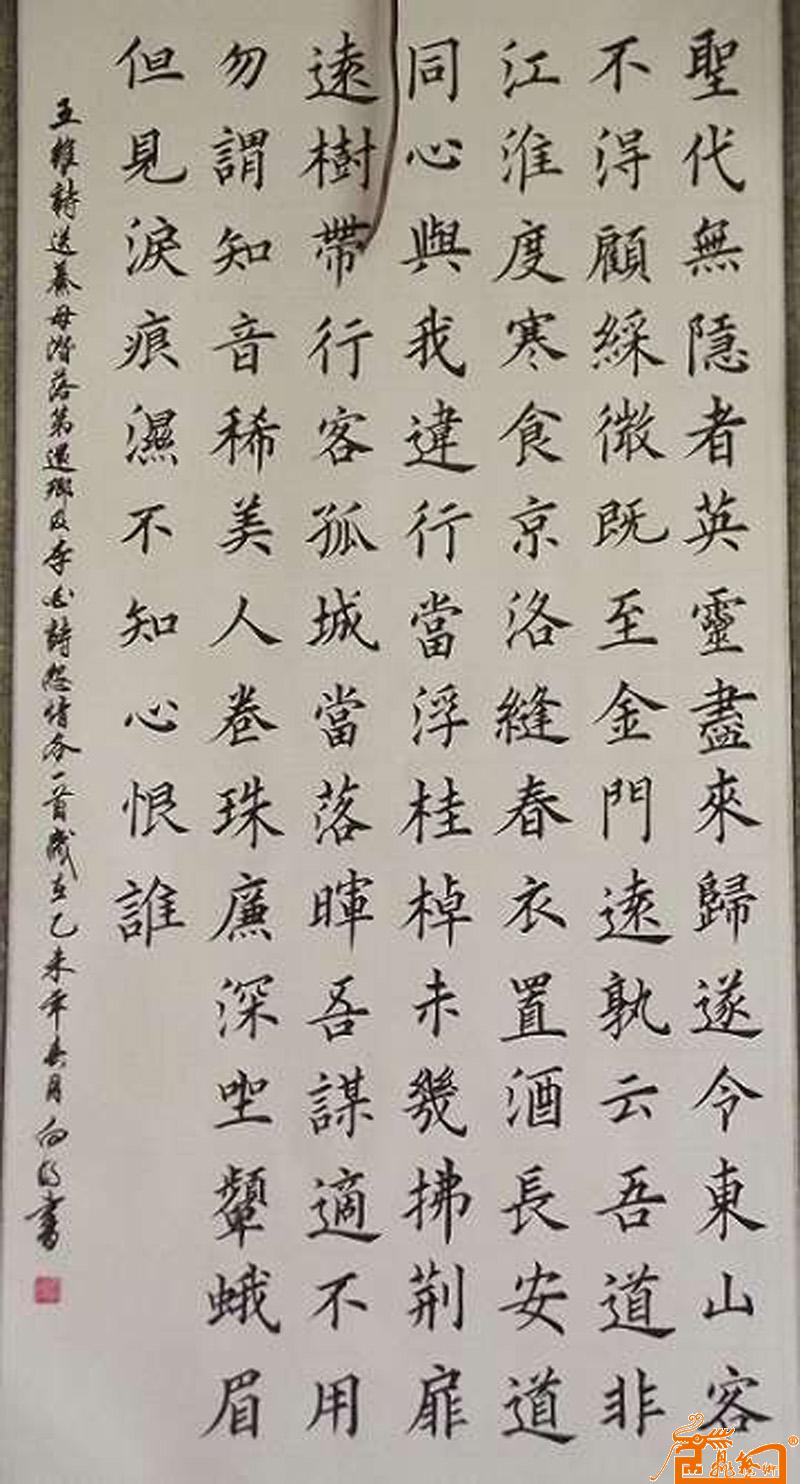 聖代無隱者英靈盡來歸遂令東山客
不得顧綵微既至金門遠孰云吾道非
江淮度寒食京洛縫春衣置酒長安道
同心與我違行當浮桂棹未幾拂荆扉
遠樹帶行客孤城當落暉吾謀適不用
勿謂知音稀美人卷珠廉深坐顰蛾眉
但見淚痕濕不知心恨誰
王維詩送綦母潛落第還鄉及李白詩怨情各一首歲在乙未年月向書